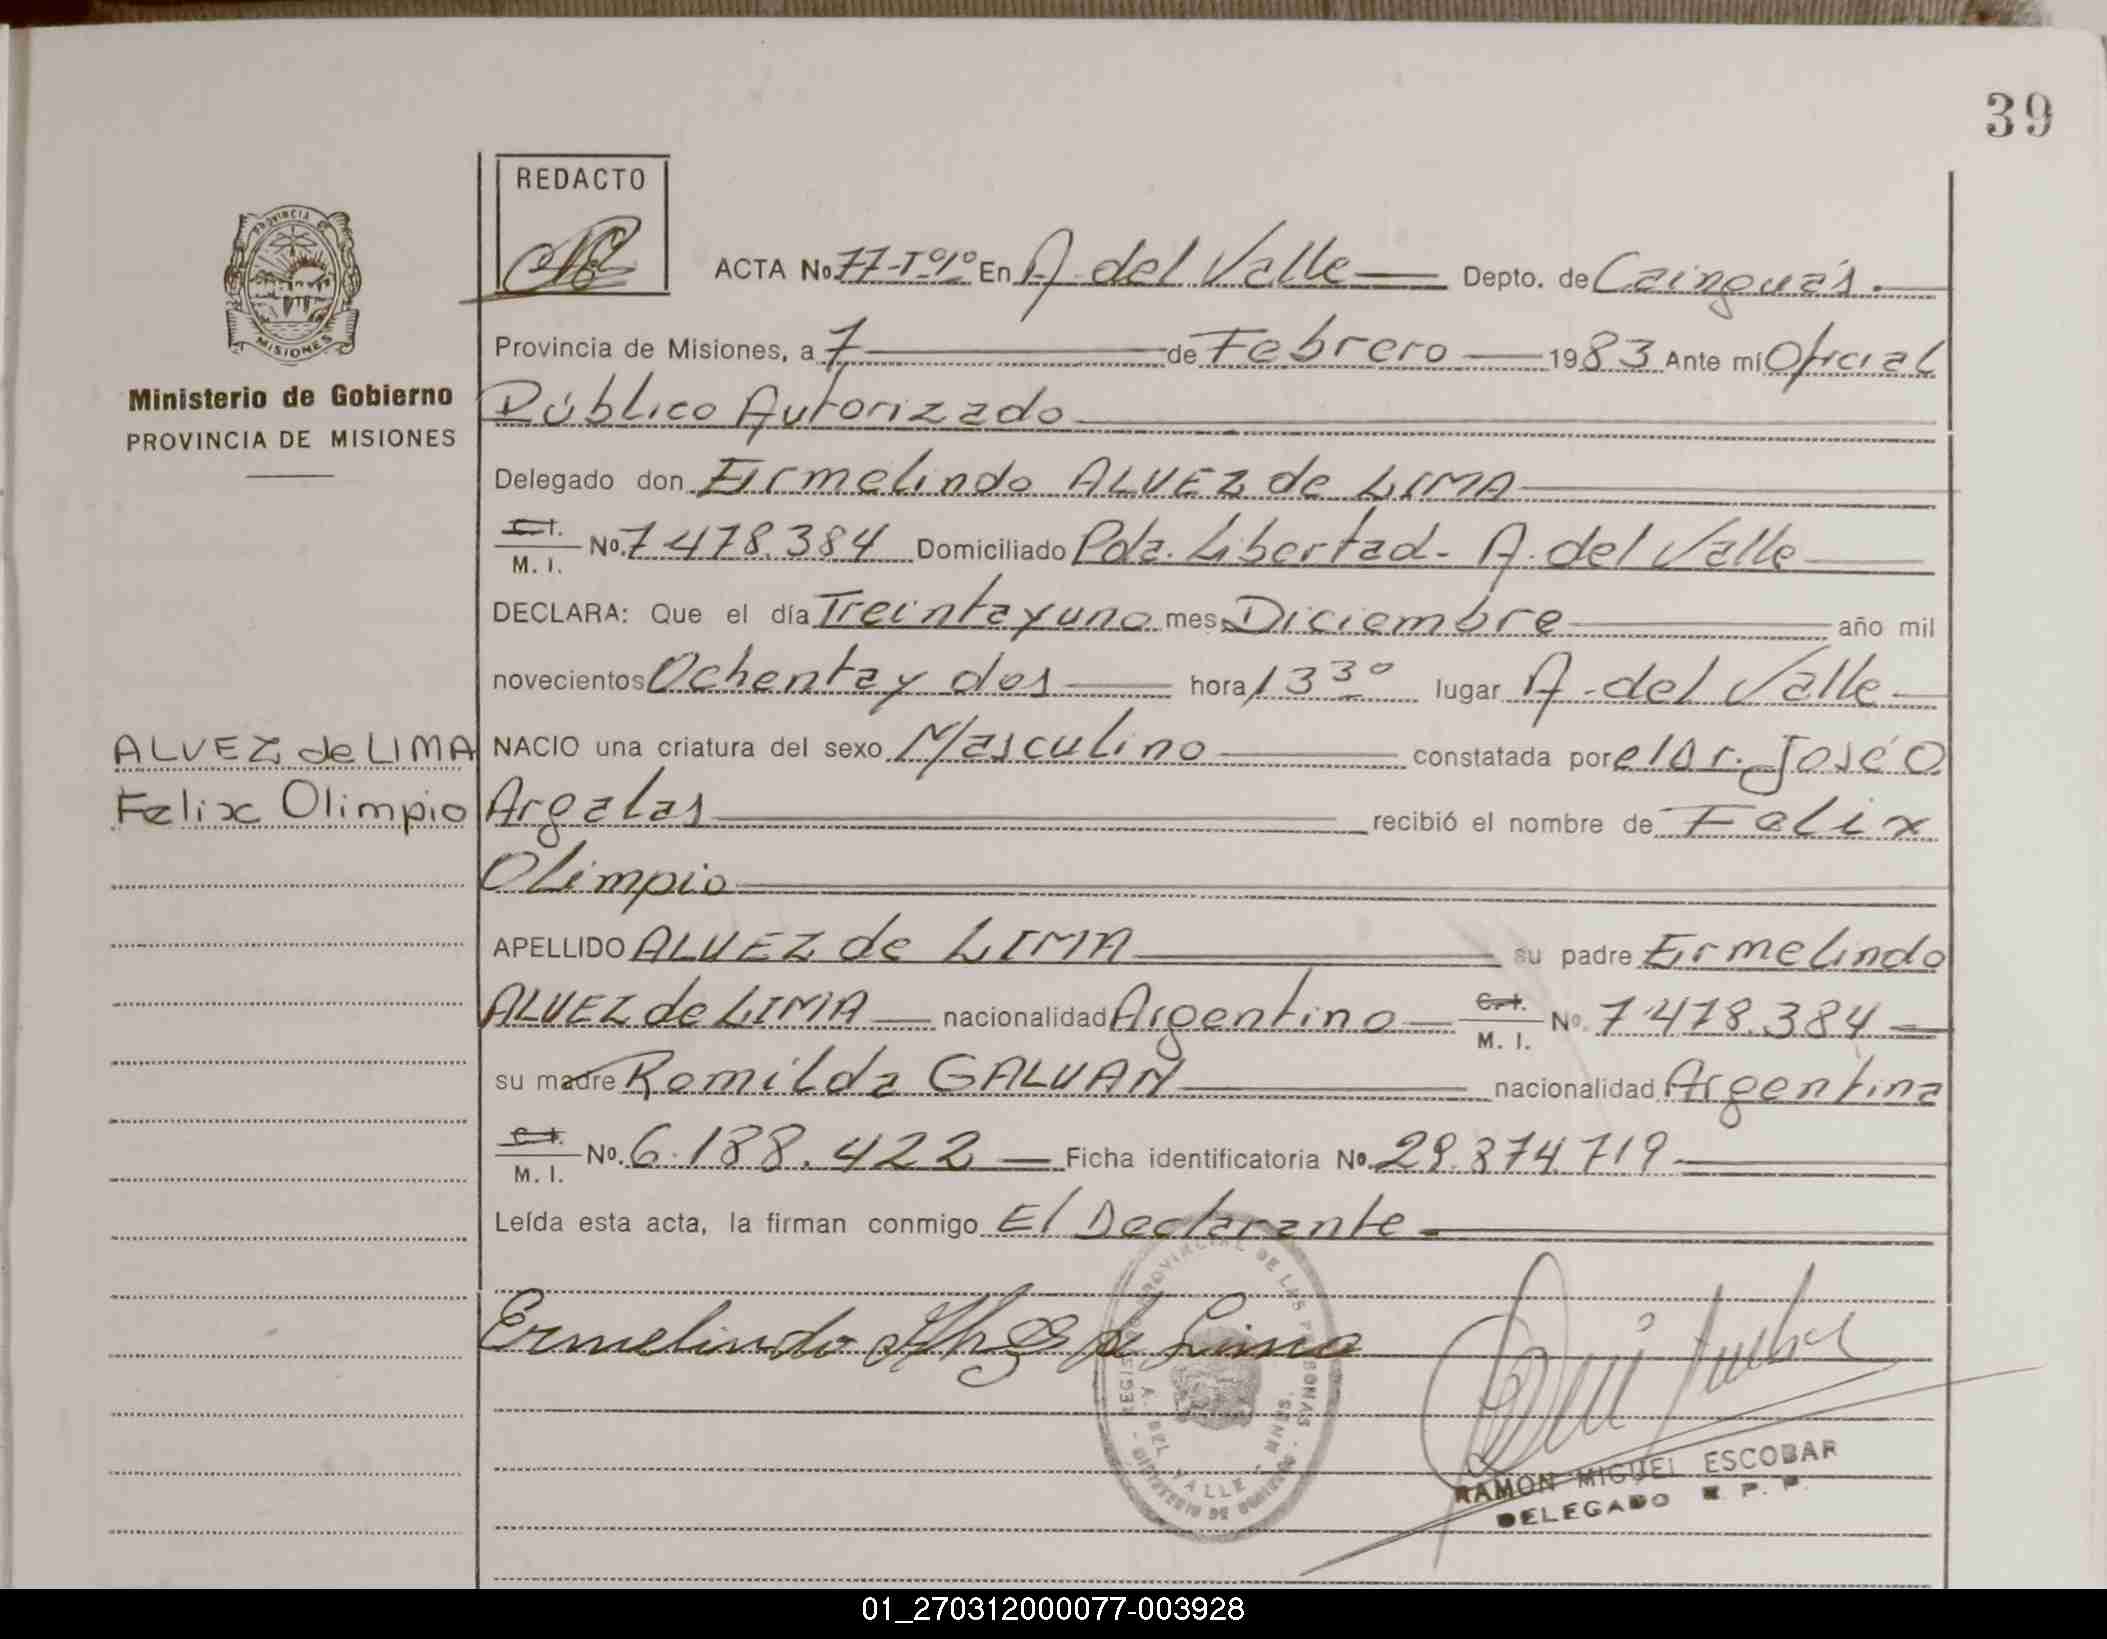 39
REDACTO
ACTA No 77-Tº1º En A. del Valle Depto. de Cainguás.
Provincia de Misiones, a 7 de Febrero 1983 Ante mí Oficial
Público Autorizado
PROVINCIA
MISIONES
Ministerio de Gobierno
PROVINCIA DE MISIONES
Delegado don Ermelindo ALVEZ de LIMA
C.I.
M. I. No. 7.478.384 Domiciliado Pda. Libertad - A. del Valle
DECLARA: Que el día Treinta y uno mes Diciembre año mil
novecientos Ochenta y dos hora 13 30 lugar A. del Valle
ALVEZ de LIMA
Felix Olimpio
NACIO una criatura del sexo Masculino constatada por el Dr. José O
Argalas recibió el nombre de Felix
Olimpio
APELLIDO ALVEZ de LIMA su padre Ermelindo
ALVEZ de LIMA nacionalidad Argentino C.I. M. I. No. 7.478.384
su madre Romilda GALVAN nacionalidad Argentina
C.I.
M. I. No. 6.188.422 Ficha identificatoria No. 29.874.719
Leída esta acta, la firman conmigo El Declarante
Ermelindo Alvez de Lima
REGISTRO PROVINCIAL DE LAS PERSONAS
A. DEL VALLE - MNES.
- MINISTERIO DE GOBIERNO -
RAMON MIGUEL ESCOBAR
DELEGADO R. P. P.
01_270312000077-003928